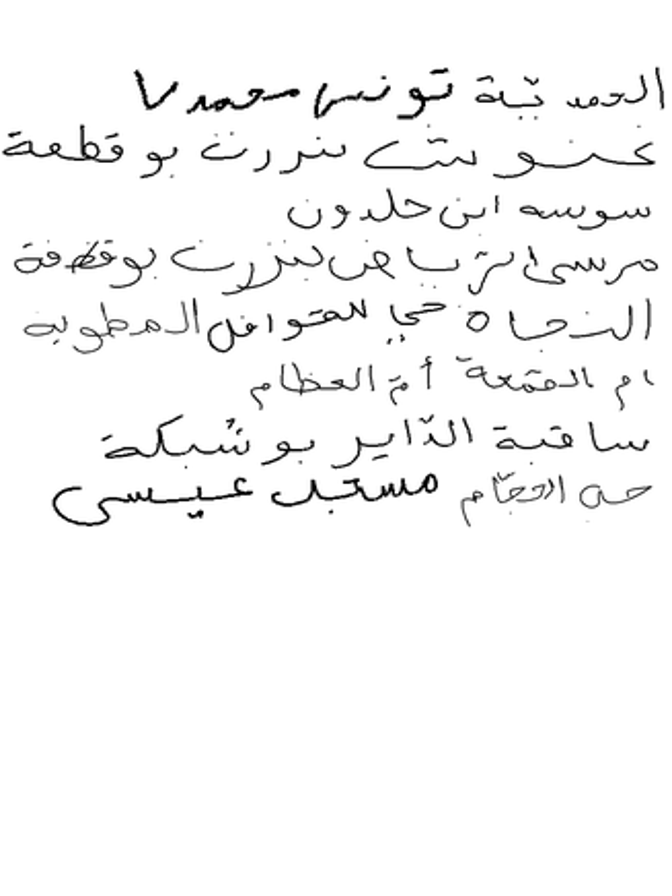 المحمدية تونس محمد ٧
غنوش بنزرت بوقطفة
سوسه ابن خلدون
مرسى الرياض بنزرت بوقطفة
النجاة حي القوافل المطوية
ام القمعة أمّ العظام
ساقية الدّاير بوشبكة
حي الحجّام مستقبل عيسى